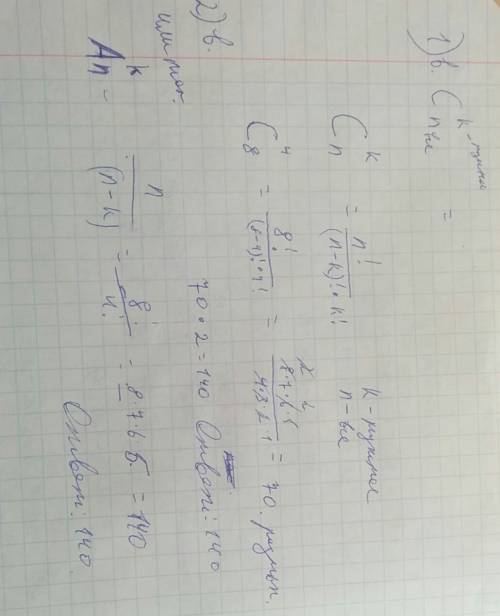 1) в. C k - нужные n все =
C k n = n! / (n-k)! • k!
k - нужные
n - все
C 4 8 = 8! / (8-4)! • 4! = 8·7·6·5 / 4·3·2·1 = 70
70 • 2 = 140 Ответ: 140
2) в.
или
A k n = n / (n-k) = 8! / 4! = 8·7·6·5 = 140
Ответ: 140.